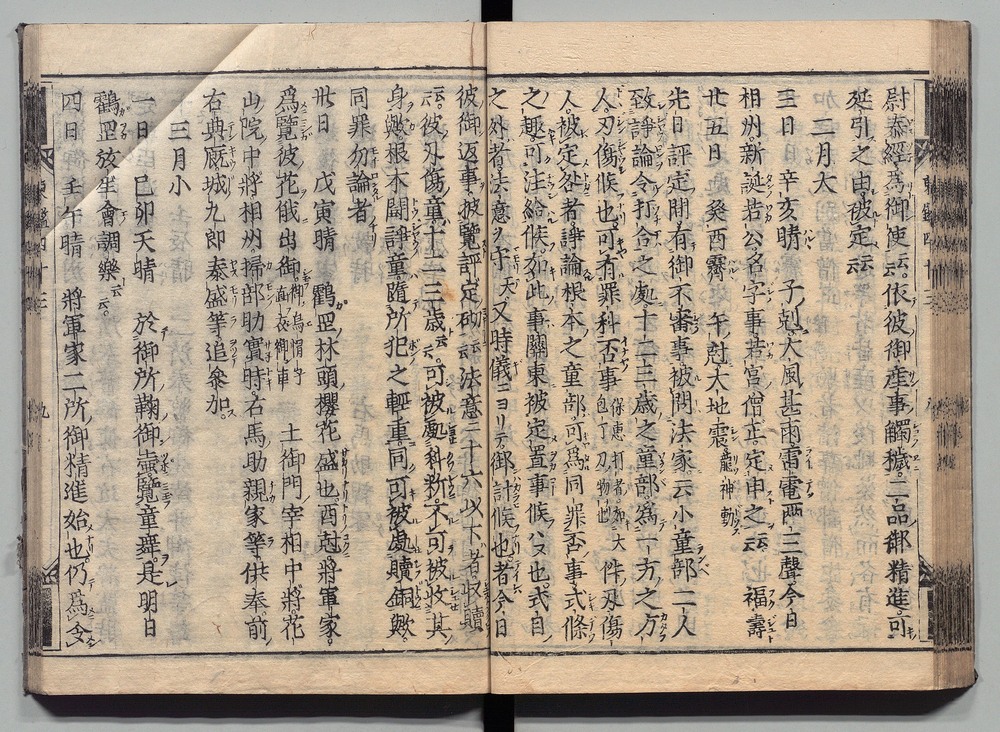 尉泰經爲御使云云依彼御産事觸穢二品御精進可
延引之由被定云云
加二月大
三日辛亥晴子剋大風甚雨雷電兩三聲今日
相州新誕若公名字事若宮僧正定申之云云福壽
廿五日癸酉霽午尅大地震龍神動
先日評定間有御不審事被問法家云小童部二人
致諍論令打合之處十二三歳之童部爲一方之方
人刃傷候也可有罪科否事
人被定咎者諍論根本之童部可爲同罪否事式條
之趣可注給候如此事關東被定置事候ハヌ也式自
之外者法意ヲ守又時儀ニヨリテ御計候也者今日
彼御返事披覽評定砌云云法意二十六以下者收贖
云云彼刃傷童十二三歳云云可被處科料不可被收其
身歟根本鬪諍童隨所犯之輕重同可被處贖銅歟
同罪勿論者
卅日戊寅晴鶴岡林頭櫻花盛也酉尅將軍家
爲覽彼花俄出御御烏帽子直衣御車土御門宰相中將花
山院中將相州掃部助實時右馬助親家等供奉前
右典厩城九郎泰盛等追參加
三月小
一日己卯天晴於御所鞠御壺覽童舞是明日
鶴岡放生會調樂云云
四日壬午晴將軍家二所御精進始也仍爲令